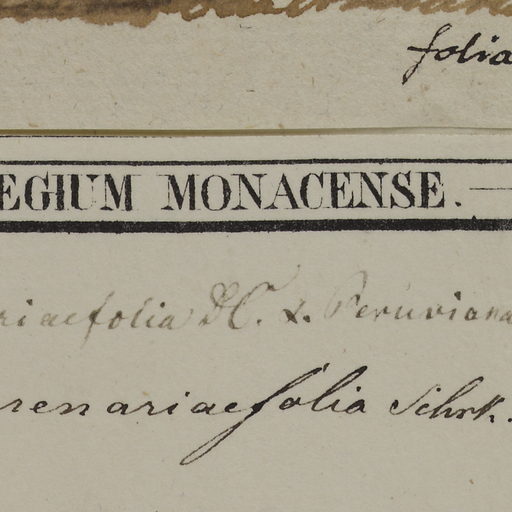 folia
EGIUM MONACENSE.
riaefolia DC. α. Peruviana
renariaefolia Schrk.